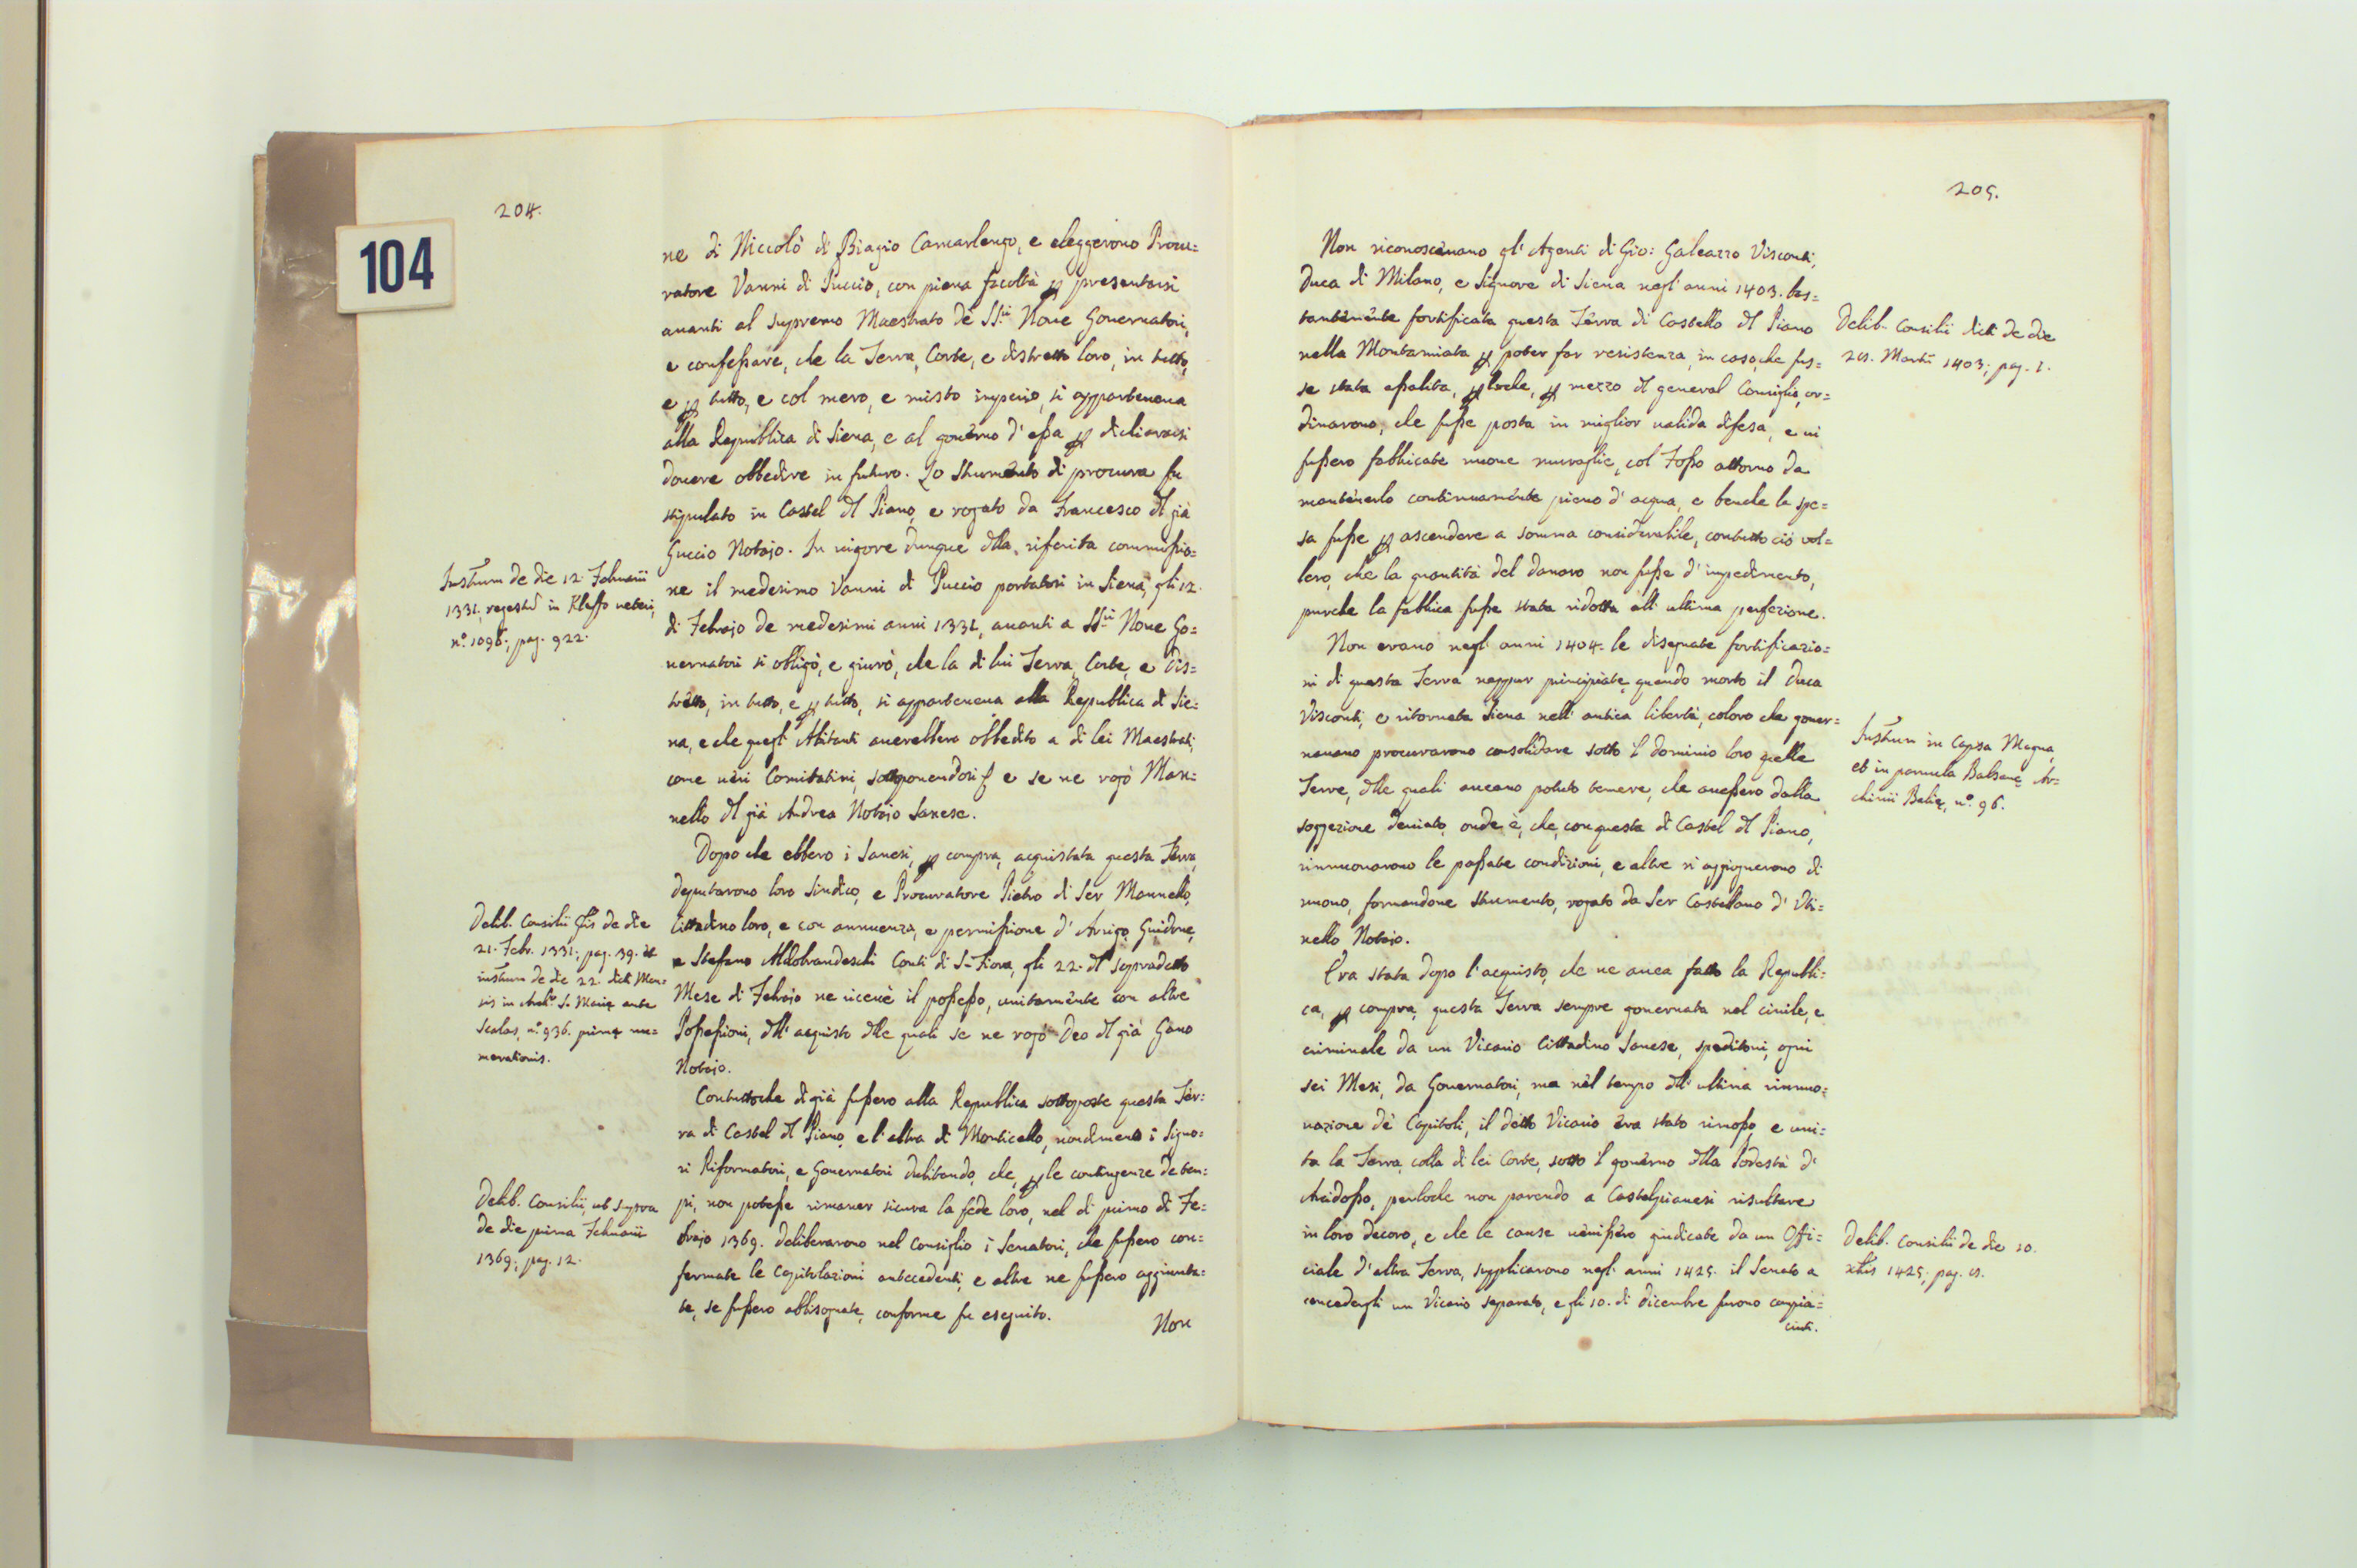 204.
104
ne di Niccolò di Biagio Camarlengo, e eleggerono Procu=
ratore Vanni di Puccio, con piena facoltà ꝑ presentarsi
auanti al supremo Maestrato de SS.ri Noue Gouernatori,
e confeßare, che la Terra, Corte, e distretto loro, in tutto,
e ꝑ tutto, e col mero, e misto imperio, si apparteneua
alla Republica di Siena, e al gouerno d' eßa ꝑ dichiararsi
douere obbedire in futuro. Lo Strumento di procura fu
stipulato in Castel dl Piano, e rogato da Francesco dl già
Guccio Notajo. In uigore dunque dlla riferita commißio=
ne il medesimo Vanni di Puccio portatosi in Siena, gli 12.
di Febrajo de medesimi anni 1331, auanti a SS.ri Noue Go=
uernatori si obligò, e giurò, che la di lui Terra, Corte, e Dis=
tretto, in tutto, e ꝑ tutto, si apparteneua alla Republica di Sie=
na, e che quegl' Abitanti auerebbero obbedito a di lei Maestrati,
come ueri Comitatini, sottoponendosi e se ne rogò Man=
nello dl già Andrea Notajo Sanese.
Instrum de die 12. Februarii
1331, registr in Kleffo ueteri,
n.o 1096, pag. 922.
Dopo che ebbero i Sanesi, ꝑ compra, acquistata questa Terra,
deputarono loro Sindico, e Procuratore Pietro di Ser Mannello,
Cittadino loro, e con annuenza, e permißione d' Arrigo, Guidone,
e Stefano Aldobrandeschi Conti di S. Fiora, gli 22. dl sopradetto
Mese di Febrajo ne riceuè il poßeßo, unitamente con altre
Poßeßioni, dll' acquisto dlle quali se ne rogò Deo dl già Gano
Notajo.
Delib. Consilii Gñis de die
21. Febr. 1331; pag. 39. et
instrum de die 22. dicti Men=
sis in Arch.o S. Marię ante
Scalas, n.o 936. primę nu=
merationis.
Contuttoche di già fußero alla Republica sottoposte questa Ter=
ra di Castel dl Piano, e l' altra di Monticello, nondimeno i Signo=
ri Riformatori, e Gouernatori dubitando, che, ꝑ le contingenze de tem=
pi, non poteße rimaner sicura la fede loro, nel dì primo di Fe=
brajo 1369. deliberarono nel Consiglio i Senatori, che fußero con=
fermate le Capitolazioni antecedenti, e altre ne fußero aggiunta=
te, se fußero abbisognate, conforme fu eseguito.
Non
Delib. Consilii, ut supra
de die prima Februarii
1369; pag. 12.
205.
Non riconosceuano gl' Agenti di Gio: Galeazzo Visconti,
Duca di Milano, e Signore di Siena negl' anni 1403. bas=
tantemente fortificata questa Terra di Castello dl Piano
nella Montamiata ꝑ poter far resistenza, in caso, che fus=
se stata aßalita, ꝑloche, ꝑ mezzo dl general Consiglio, or=
dinarono, che fuße posta in miglior ualida difesa, e ui
fußero fabbricate nuoue muraglie, col Foßo attorno da
mantenerlo continuamente pieno d' acqua, e benche la spe=
sa fuße ꝑ ascendere a somma considerabile, contutto ciò vol=
lero, che la quantità del danaro non fuße d' impedimento,
purche la fabbrica fuße stata ridotta all' ultima perfezione.
Delib. Consilii dicti de die
25. Martii 1403; pag. 1.
Non erano negl' anni 1404. le disegnate fortificazio=
ni di questa Terra neppur principiate, quando morto il Duca
Visconti, e ritornata Siena nell' antica libertà, coloro che gouer=
nauano procurarono consolidare sotto 'l dominio loro quelle
Terre, dlle quali aueano potuto temere, che aueßero dalla
soggezione deuiato, onde è, che, con questa di Castel dl Piano,
rinnuouarono le paßate condizioni, e altre si aggiognerono di
nuouo, formandone strumento, rogato da Ser Castellano d' Uti=
nello Notajo.
Instrum in Capsa Magna,
et in paruula Balzanę Ar=
chiuii Balię, n.o 96.
Era stata dopo l' acquisto, che ne auea fatto la Republi=
ca, ꝑ compra, questa Terra sempre gouernata nel ciuile, e
criminale da un Vicario Cittadino Sanese, speditoui, ogni
sei Mesi, da Gouernatori, ma nel tempo dll' ultima rinnuo=
uazione de' Capitoli, il detto Vicario era stato rimoßo, e uni=
ta la Terra, colla di lei Corte, sotto 'l gouerno dlla Podestà d'
Arcidoßo, perloche non parendo a Castelpianesi risultare
in loro decoro, e che le cause uenißero giudicate da un Offi=
ciale d' altra Terra, supplicarono negl' anni 1425. il Senato a
concedergli un Vicario separato, e gli 10. di Dicembre furono compia=
ciuti.
Delib. Consilii de die 10.
xbris 1425; pag. 15.